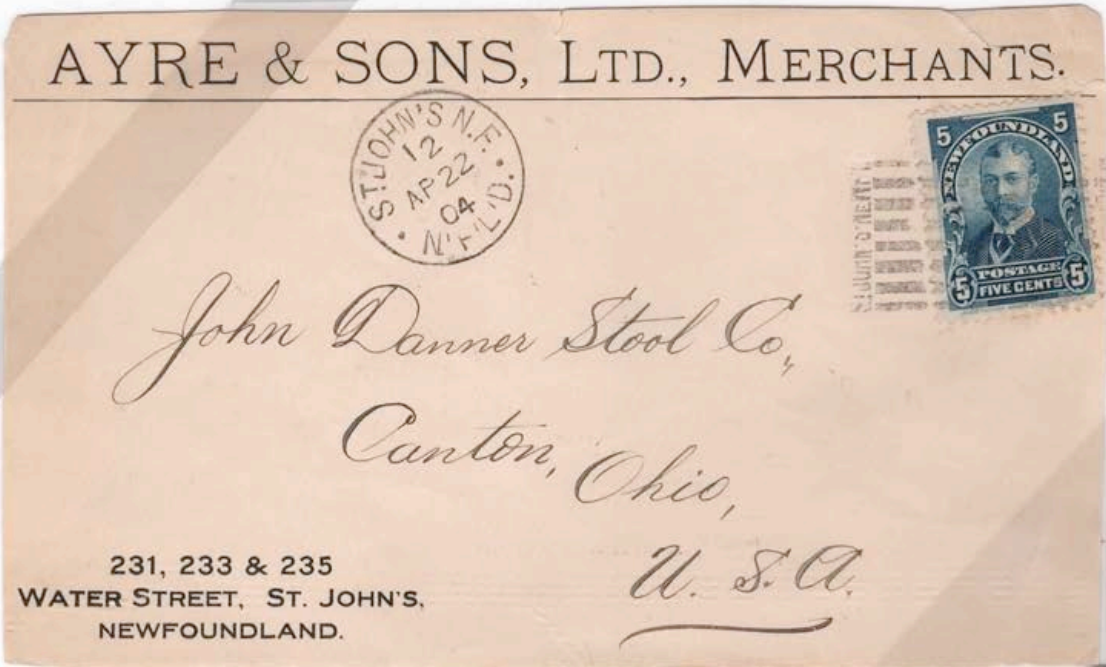 AYRE & SONS, LTD., MERCHANTS.
ST. JOHN'S N.F.
12
AP 22
04
N'F'L'D.
5 5
NEWFOUNDLAND
POSTAGE
5 FIVE CENTS 5
John Danner Stool Co.,
Canton, Ohio,
U. S. A.
231, 233 & 235
WATER STREET, ST. JOHN'S,
NEWFOUNDLAND.